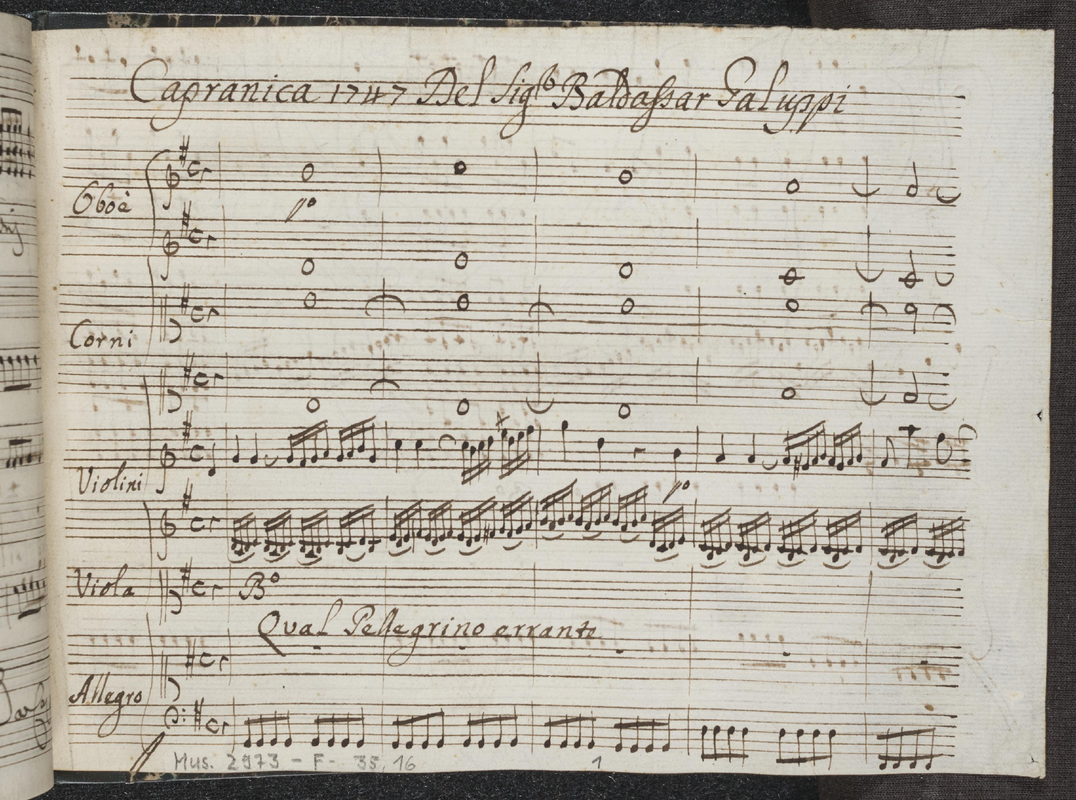 Capranica 1747 Del Sigr Baldassar Galuppi
Oboè
po
Corni
Violini
po
Viola
Bo
Qual Pellegrino errante
Allegro
Mus. 2973 - F - 35, 16
1